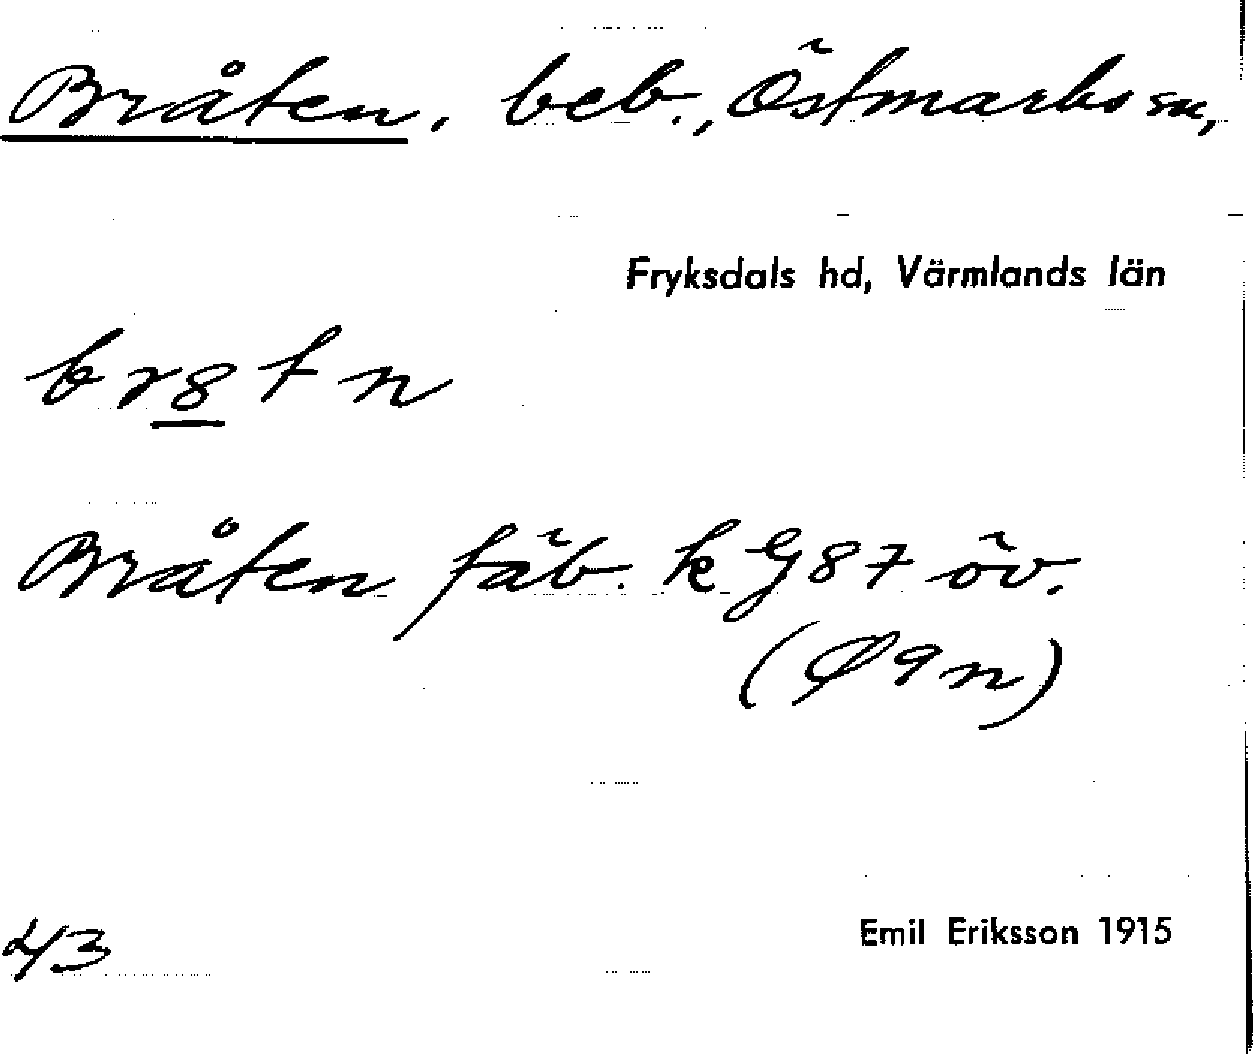 Bråten, beb., Östmarks sn,
Fryksdals hd, Värmlands län
br8tn
Bråten fäb. k G 87 öv.
(Ø 9 n)
43
Emil Eriksson 1915